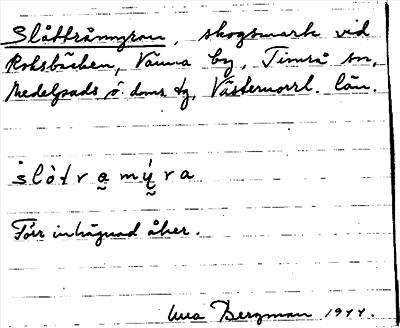 Slåttråmyran, skogsmark vid
Roksbäcken, Vänna by, Timrå sn,
Medelpads ö. doms tg, Västernorrl. län.
slòtramýra
Förr inhägnad åker.
Bergman 1944.